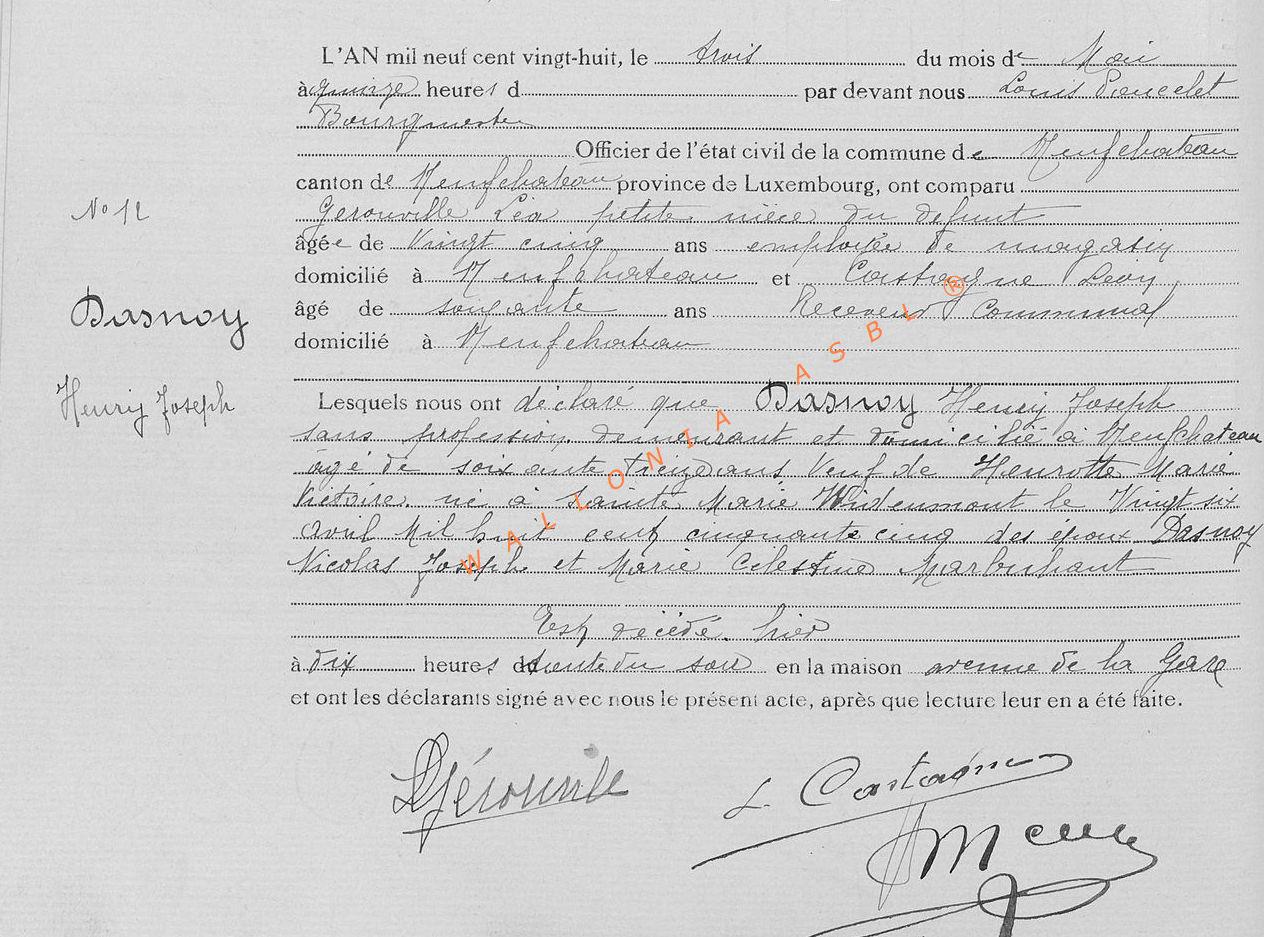 L'AN mil neuf cent vingt-huit, le trois du mois de Mai
à quinze heures d par devant nous Louis Poncelet
Bourgmestre
Officier de l'état civil de la commune de Neufchateau
canton de Neufchateau province de Luxembourg, ont comparu
N° 12
Gerouville Léa petite nièce du défunt
âgée de Vingt cinq ans employée de magasin
domicilié à Neufchateau et Castagne Léon
âgé de soixante ans Receveur Communal
domicilié à Neufchateau
Dasnoy
Henry Joseph
Lesquels nous ont déclaré que Dasnoy Henry Joseph
sans profession demeurant et domicilié à Neufchateau
âgé de soixante treize ans Veuf de Henrotte Marie
Victoire né à Sainte Marie Wideumont le Vingt six
avril Mil huit cent cinquante cinq des époux Dasnoy
Nicolas Joseph et Marie Célestine
Est décédé hier
à dix heures du soir en la maison avenue de la Gare
et ont les déclarants signé avec nous le présent acte, après que lecture leur en a été faite.
LGérouville
L Castagne
WALLONIA ASBL ®